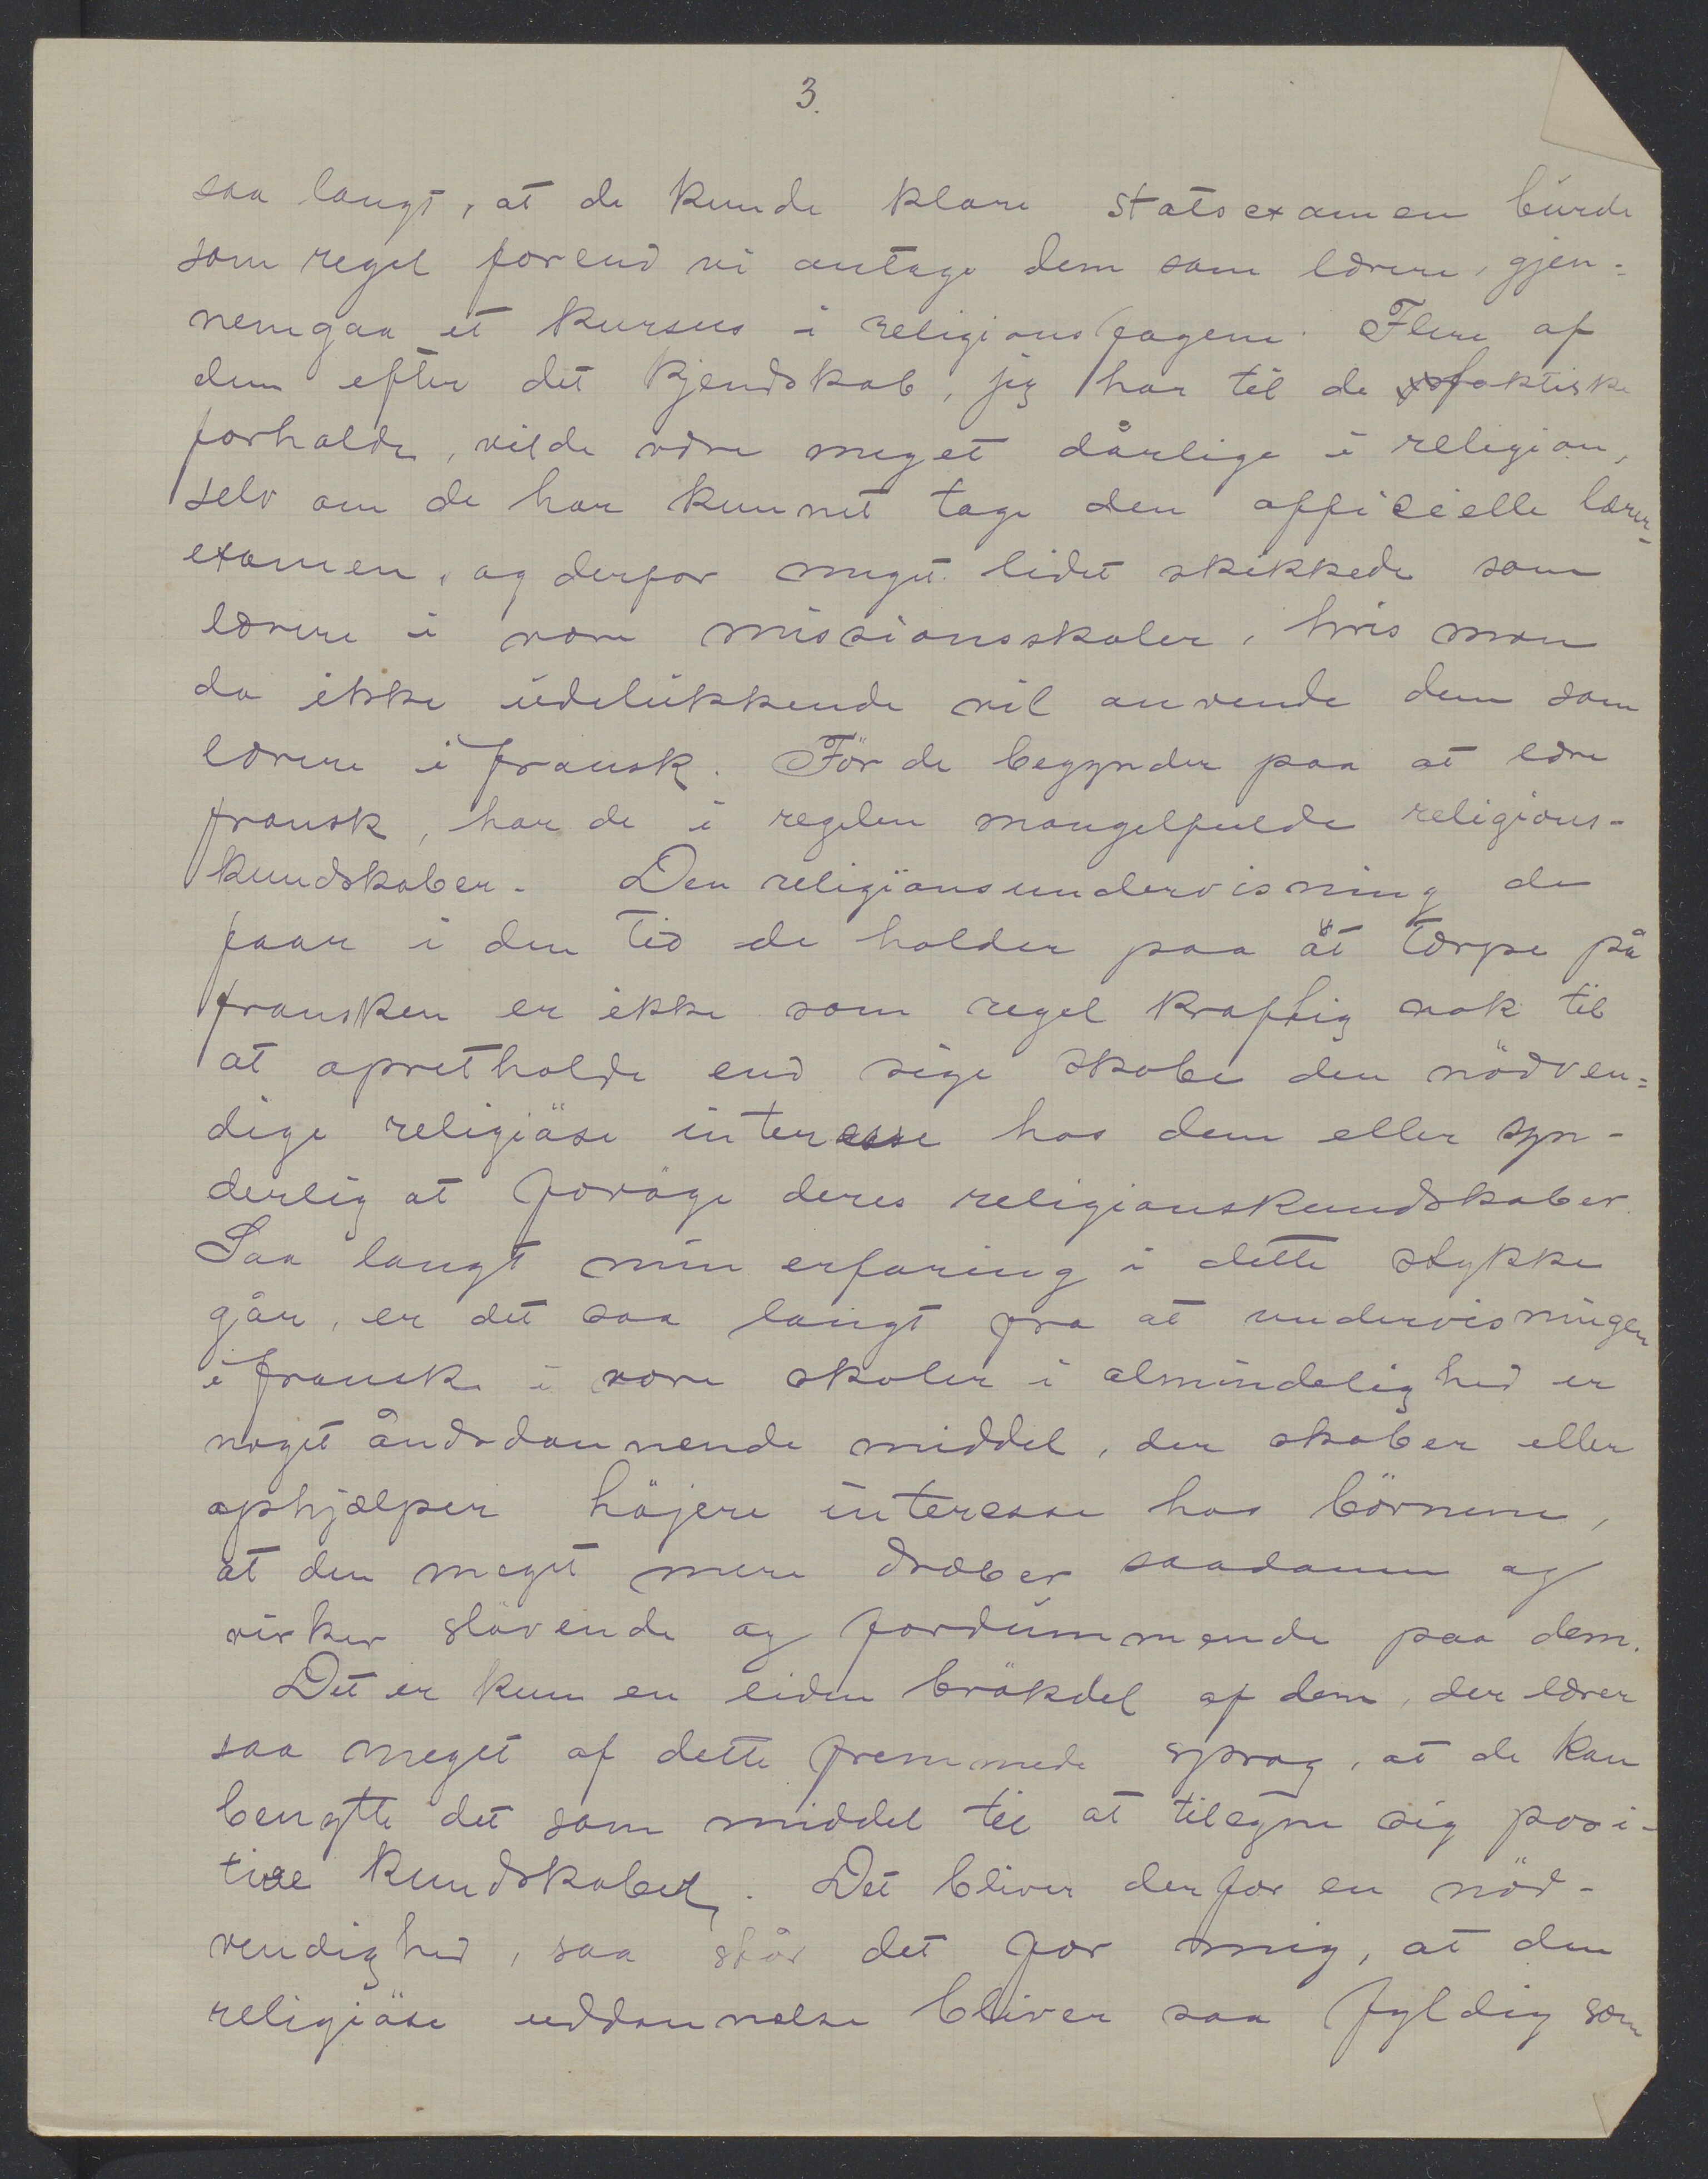 3.
saa langt, at de kunde klare statsexamen burde
som regel forend vi antage dem som lærere, gjen=
nemgaa et kursus i religionsfagene. Flere af
dem efter det kjendskab, jeg har til de faktiske
forholde, vilde være meget dårlige i religion,
selv om de har kunnet tage den officielle lærer-
examen, og derfor meget lidet skikkede som
lærere i vore missionsskoler, hvis man
da ikke udelukkende vil anvende dem som
lærere i fransk. Før de begynder paa at lære
fransk, har de i regelen mangelfulde religions-
kundskaber. Den religionsundervisning de
faar i den tid de holder paa at tærpe på
fransken er ikke som regel kraftig nok til
at opretholde end sige skabe den nödven=
dige religiöse interesse hos dem eller syn-
derlig at foröge deres religionskundskaber.
Saa langt min erfaring i dette stykke
går, er det saa langt fra at undervisningen
i fransk i vore skoler i almindelighed er
noget åndsdannende middel, der skaber eller
ophjælper höjere interesse hos börnene,
at den meget mere dræber saadanne og
virker slövende og fordummende paa dem.
Det er kun en liden brökdel af dem, der lærer
saa meget af dette fremmede sprog, at de kan
benytte det som middel til at tilegne sig posi-
tive kundskaber. Det bliver derfor en nöd-
vendighed, saa står det for mig, at den
religiöse uddannelse bliver saa fyldig som